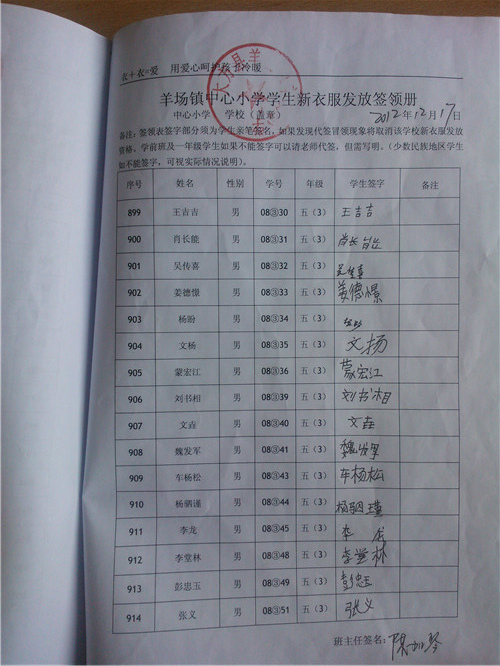 衣+衣=爱 用爱心呵护孩子冷暖
大方县羊
羊场镇中心小学学生新衣服发放签领册
中心小学 学校(盖章) 2012年12月17日
备注:签领表签字部分须为学生亲笔签名,如果发现代签冒领现象将取消该学校新衣服发放
资格。学前班及一年级学生如果不能签字可以请老师代签,但需写明。(少数民族地区学生
如不能签字,可视实际情况说明)。
序号 姓名 性别 学号 年级 学生签字 备注
899 王吉吉 男 08③30 五(3) 王吉吉
900 肖长能 男 08③31 五(3) 肖长能
901 吴传喜 男 08③32 五(3) 吴传喜
902 姜德憬 男 08③33 五(3) 姜德憬
903 杨盼 男 08③34 五(3)
904 文杨 男 08③35 五(3) 文扬
905 蒙宏江 男 08③36 五(3) 蒙宏江
906 刘书相 男 08③39 五(3) 刘书相
907 文垚 男 08③40 五(3) 文垚
908 魏发军 男 08③41 五(3) 魏发军
909 车杨松 男 08③43 五(3) 车杨松
910 杨驷谨 男 08③44 五(3) 杨驷瑾
911 李龙 男 08③45 五(3) 李龙
912 李堂林 男 08③48 五(3) 李堂林
913 彭忠玉 男 08③49 五(3) 彭忠玉
914 张义 男 08③51 五(3) 张义
班主任签名:陈